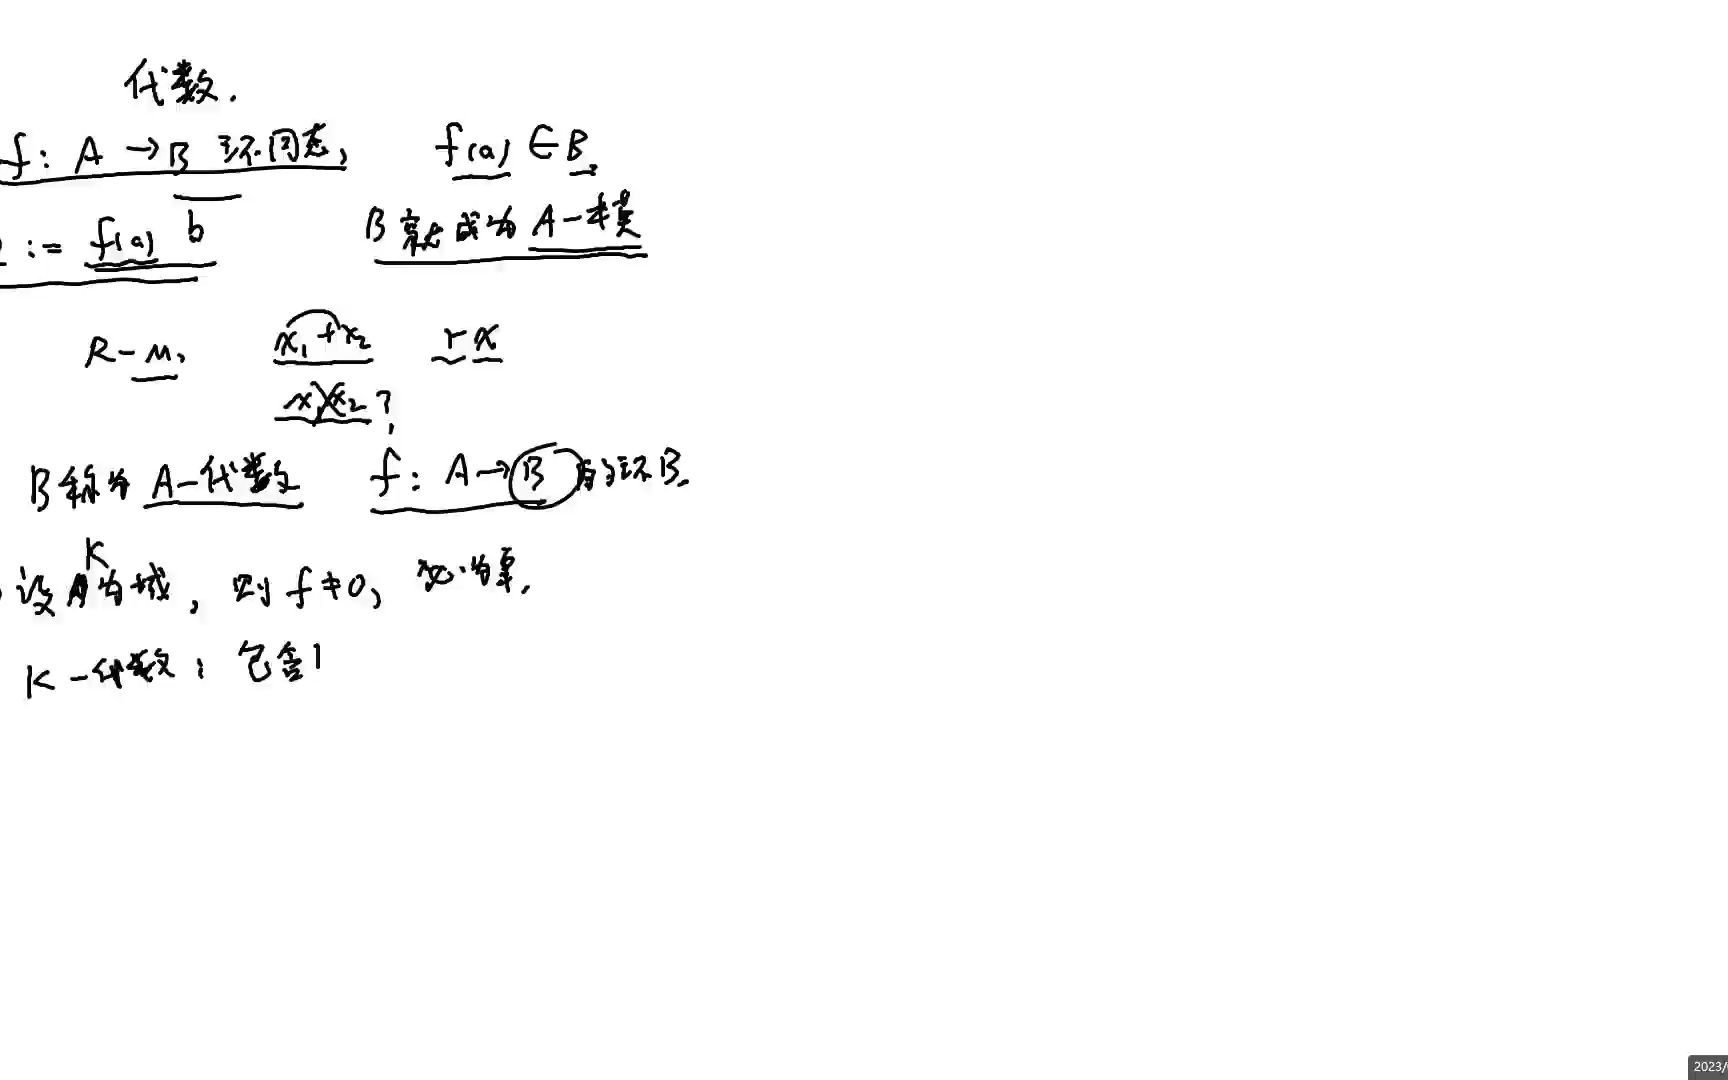 代数.
f: A → B 环同态, f(a) ∈ B.
:= f(a) b B 就成为 A-模
R-M, x₁+x₂ rx
x₁x₂?
B称为 A-代数 f: A→B 的环B.
设 K 为域, 则 f≠0, 必为单.
K-代数: 包含1
2023/